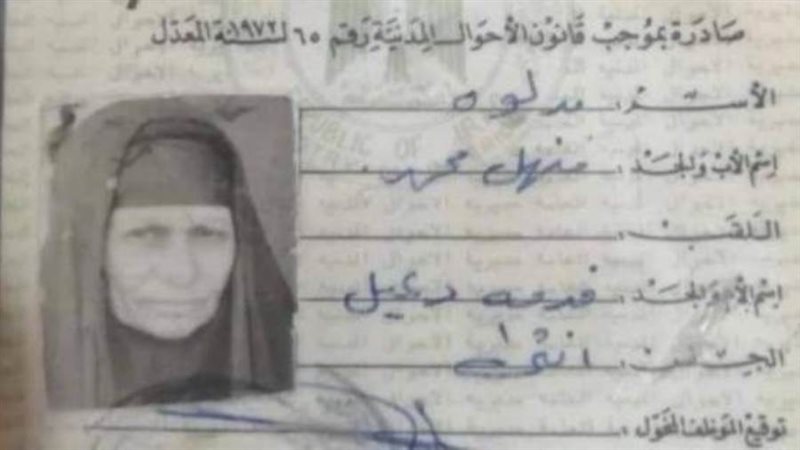 صادرة بموجب قانون الأحوال المدنية رقم ٦٥ لسنة ١٩٧٢ المعدل
الاسم : مدلوه
اسم الأب والجد : منهل محمد
اللقب :
اسم الأم والجد : فدعه دخيل
الجنس : انثى
توقيع الموظف المخول :